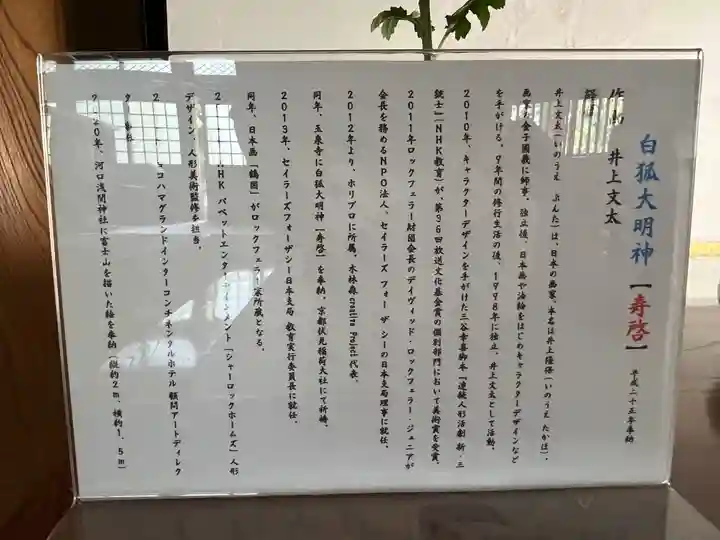 白狐大明神【寿啓】 平成二十五年奉納
井上文太
井上文太(いのうえ ぶんた)は、日本の画家、本名は井上隆保(いのうえ たかほ)、
画家の金子國義に師事。独立後、日本画や油絵をはじめキャラクターデザインなど
を手がける。9年間の修行生活の後、1998年に独立、井上文太として活動。
2010年、キャラクターデザインを手がけた三谷幸喜脚本「連続人形活劇 新・三
銃士」(NHK教育)が、第36回放送文化基金賞の個別部門において美術賞を受賞。
2011年ロックフェラー財団会長のデイヴィッド・ロックフェラー・ジュニアが
会長を務めるNPO法人、セイラーズ フォー ザ シーの日本支局理事に就任。
2012年より、ホリプロに所属。木林森 creative Project 代表。
同年、玉泉寺に白狐大明神【寿啓】を奉納。京都伏見稲荷大社にて祈祷。
2013年、セイラーズフォーザシー日本支局 教育実行委員長に就任。
同年、日本画「鶴図」がロックフェラー家所蔵となる。
NHK パペットエンターテインメント「シャーロックホームズ」人形
デザイン、人形美術監修を担当。
ヨコハマグランドインターコンチネンタルホテル 顧問アートディレク
ター就任
年、河口浅間神社に富士山を描いた絵を奉納(縦約2m、横約1.5m)